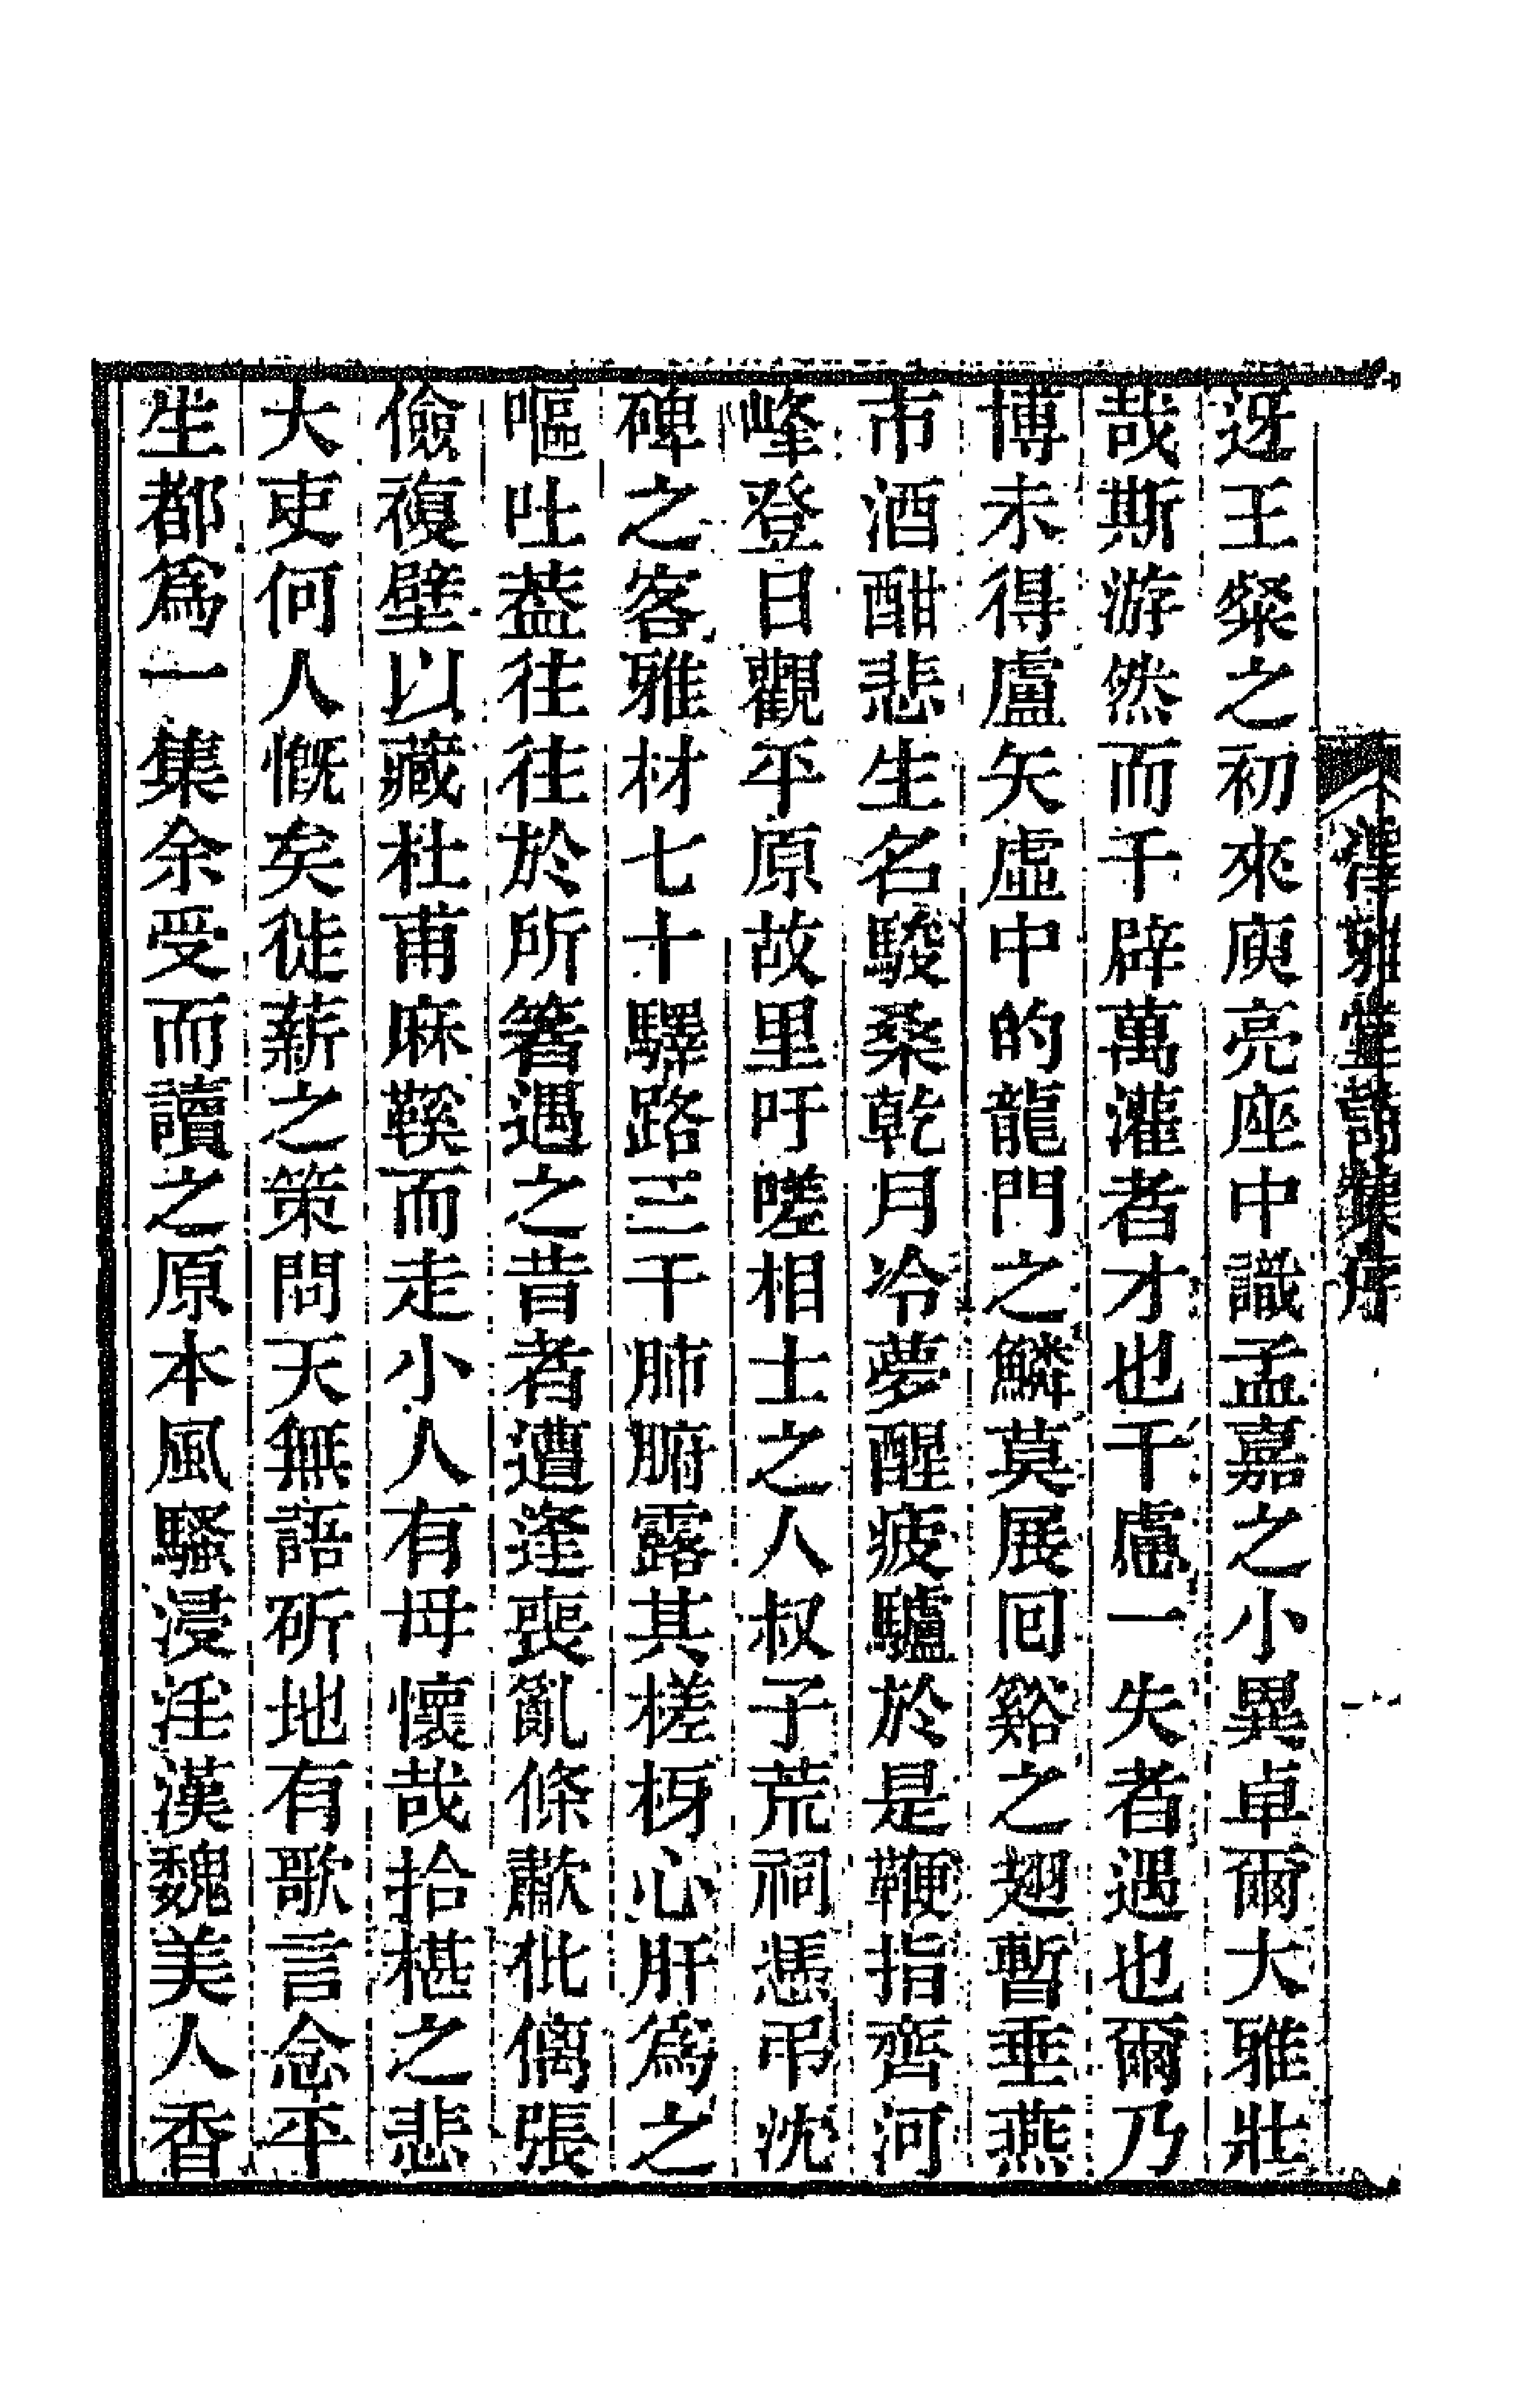 澤雅堂詩集序
迓王粲之初來庾亮座中識孟嘉之小異卓爾大雅壯
哉斯游然而千辟萬灌者才也千慮一失者遇也爾乃
博未得盧矢虛中的龍門之鱗莫展回谿之翅暫垂燕
市酒酣悲生名駿桑乾月冷夢醒疲驢於是鞭指齊河
峰登日觀平原故里吁嗟相士之人叔子荒祠憑弔沈
碑之客雅材七十驛路三千肺腑露其槎枒心肝爲之
嘔吐葢往往於所簭遇之昔者遭逢喪亂條歗仳僞張
儉複壁以藏杜甫麻鞵而走小人有母懷哉拾椹之悲
大吏何人慨矣徙薪之策問天無語斫地有歌言念平
生都爲一集余受而讀之原本風騷浸淫漢魏美人香